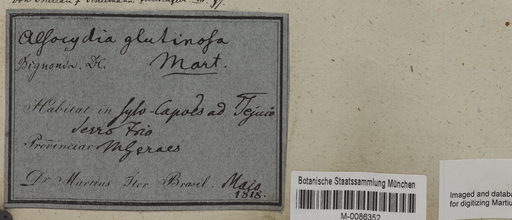 Alsocydia glutinosa
Bignonia. DC. Mart.
Habitat in sylv. Capoës ad Tejuco
Serro Frio
Provinciae MGeraës
Dr. Martius Iter Brasil. Majo
1818.
Botanische Staatssammlung München
M-0086352
Imaged and databa
for digitizing Martiu